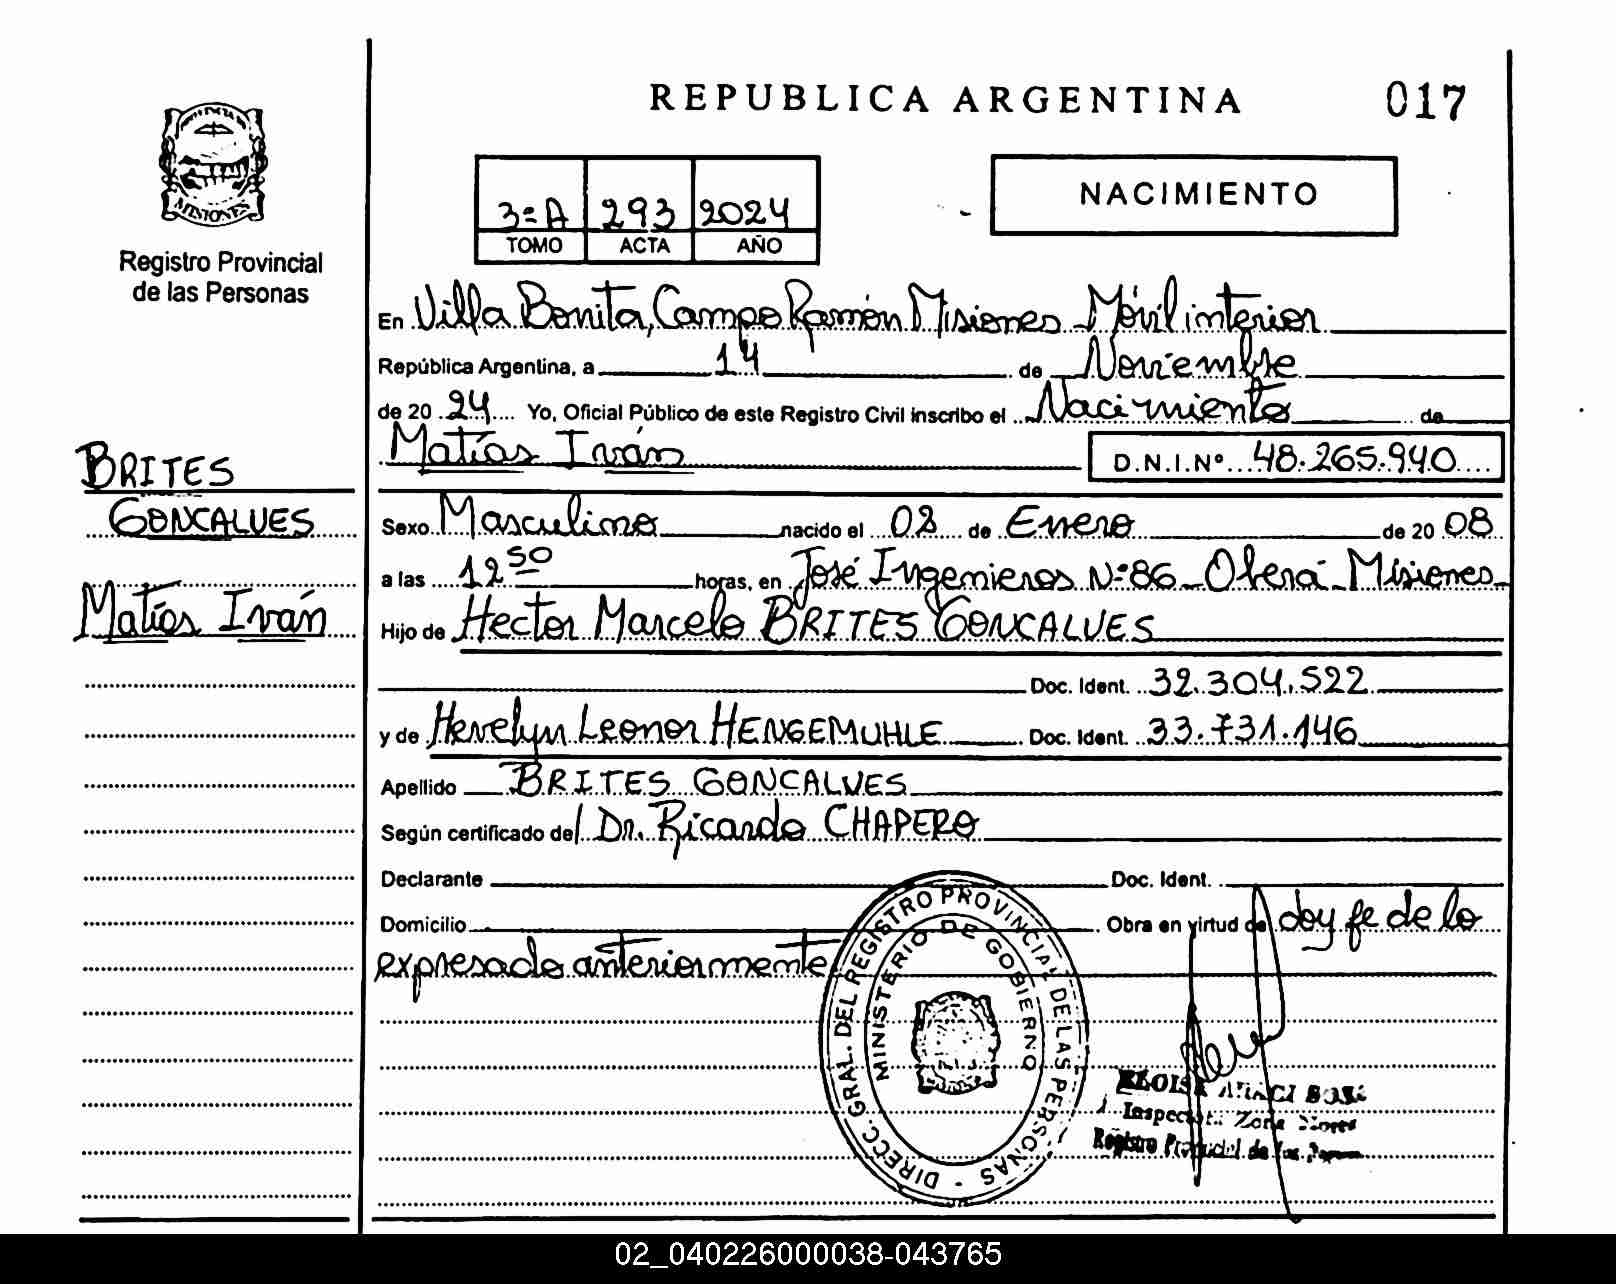 REPUBLICA ARGENTINA
017
MISIONES
Registro Provincial
de las Personas
3ºA 293 2024
TOMO ACTA AÑO
NACIMIENTO
En Villa Bonita, Campo Ramón Misiones - Móvil interior
República Argentina, a 14 de Noviembre
de 20 24 Yo, Oficial Público de este Registro Civil inscribo el Nacimiento de
Matías Iván
D.N.I.Nº 48.265.940
BRITES
GONCALVES
Matías Iván
Sexo Masculino nacido el 02 de Enero de 20 08
a las 12 50 horas, en José Ingenieros Nº86 - Oberá - Misiones -
Hijo de Hector Marcelo BRITES GONCALVES
Doc. Ident. 32.304.522
y de Hevelyn Leonor HENGEMUHLE Doc. Ident. 33.731.146
Apellido BRITES GONCALVES
Según certificado de/ Dr. Ricardo CHAPERO
Declarante Doc. Ident.
Domicilio Obra en virtud de doy fe de lo
expresado anteriormente
DIRECC. GRAL. DEL REGISTRO PROVINCIAL DE LAS PERSONAS -
MINISTERIO DE GOBIERNO
Registro Provincial de las
02_040226000038-043765